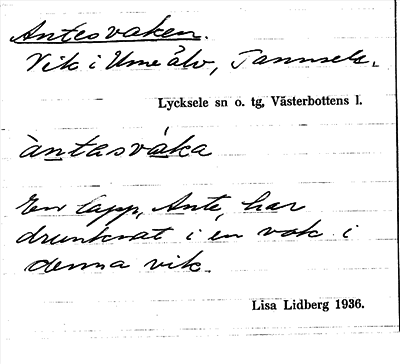 Antesvaken.
Vik i Umeälv, Tannsele.
Lycksele sn o. tg, Västerbottens l.
àntasvá̱ka
En lapp, Ante, har
drunknat i en vak i
denna vik.
Lisa Lidberg 1936.